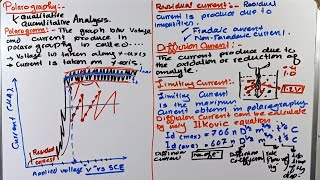 Polarography:-
Qualitative
Quantitative Analysis.
Polarograms:- The graph b/w Voltage
and current produce in
polarography is called
Voltage taken along x-axis
Current is taken on y-axis.
Current (MA)
Residual
Current
Applied voltage V vs SCE
Residual current:- Residual
Current is produce due to
impurities
Fradaic current
Non-Faradaic current.
Diffusion Current:-
The current produce due
to the oxidation or reduction of
analyte.
Limiting Current:-
Limiting Current
is the maximum
Current obtain in polarography.
Diffusion Current can be calculate
by using Ilkovic equation
Id (max) = 706 n D½ m⅔ t⅙ C
Id (ave) = 607 n D½ m⅔ t⅙ C
Diffusion
current
Diffusion
Coefficient